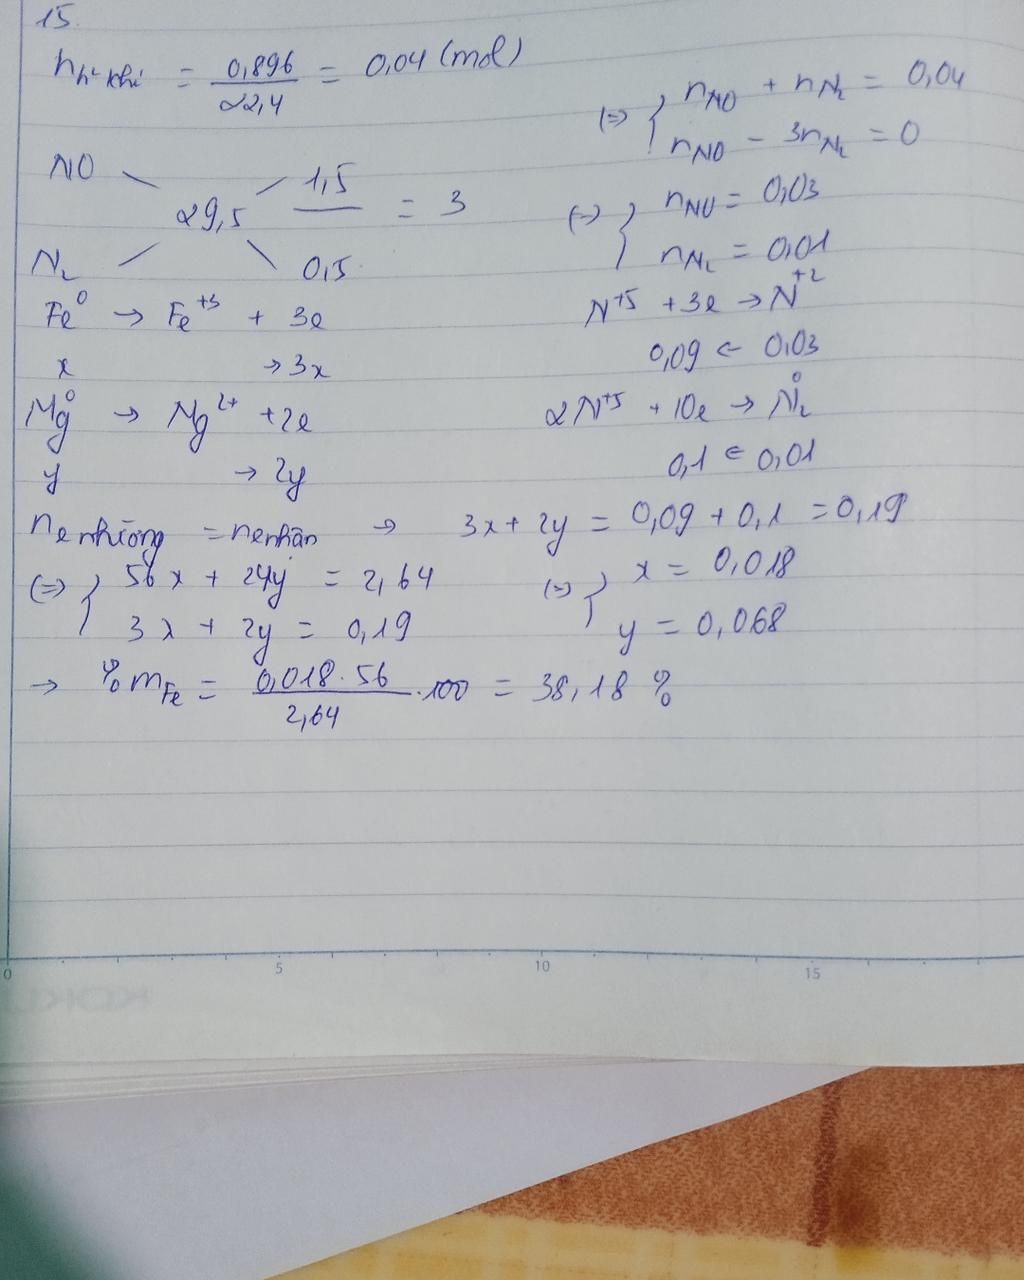 15.
n h² khí = 0,896 / 22,4 = 0,04 (mol)
(=) { nNO + nN₂ = 0,04
nNO - 3nN₂ = 0
NO 1,5
29,5 = 3
N₂ 0,5
(=) { nNO = 0,03
nN₂ = 0,01
Fe⁰ → Fe⁺³ + 3e
x → 3x
Mg⁰ → Mg²⁺ + 2e
y → 2y
N⁺⁵ + 3e → N⁺²
0,09 ← 0,03
2N⁺⁵ + 10e → N₂⁰
0,1 ← 0,01
ne nhường = ne nhận → 3x + 2y = 0,09 + 0,1 = 0,19
(=) { 56x + 24y = 2,64 (=) { x = 0,018
3x + 2y = 0,19 y = 0,068
→ %mFe = 0,018 . 56 / 2,64 . 100 = 38,18 %
0 5 10 15